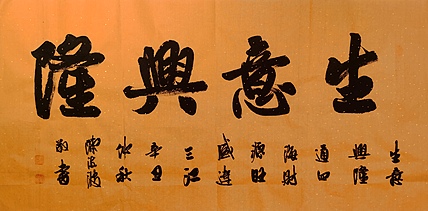 生意興隆
生意
興隆
通四
海財
源旺
盛達
三江
辛丑
仲秋
敬書